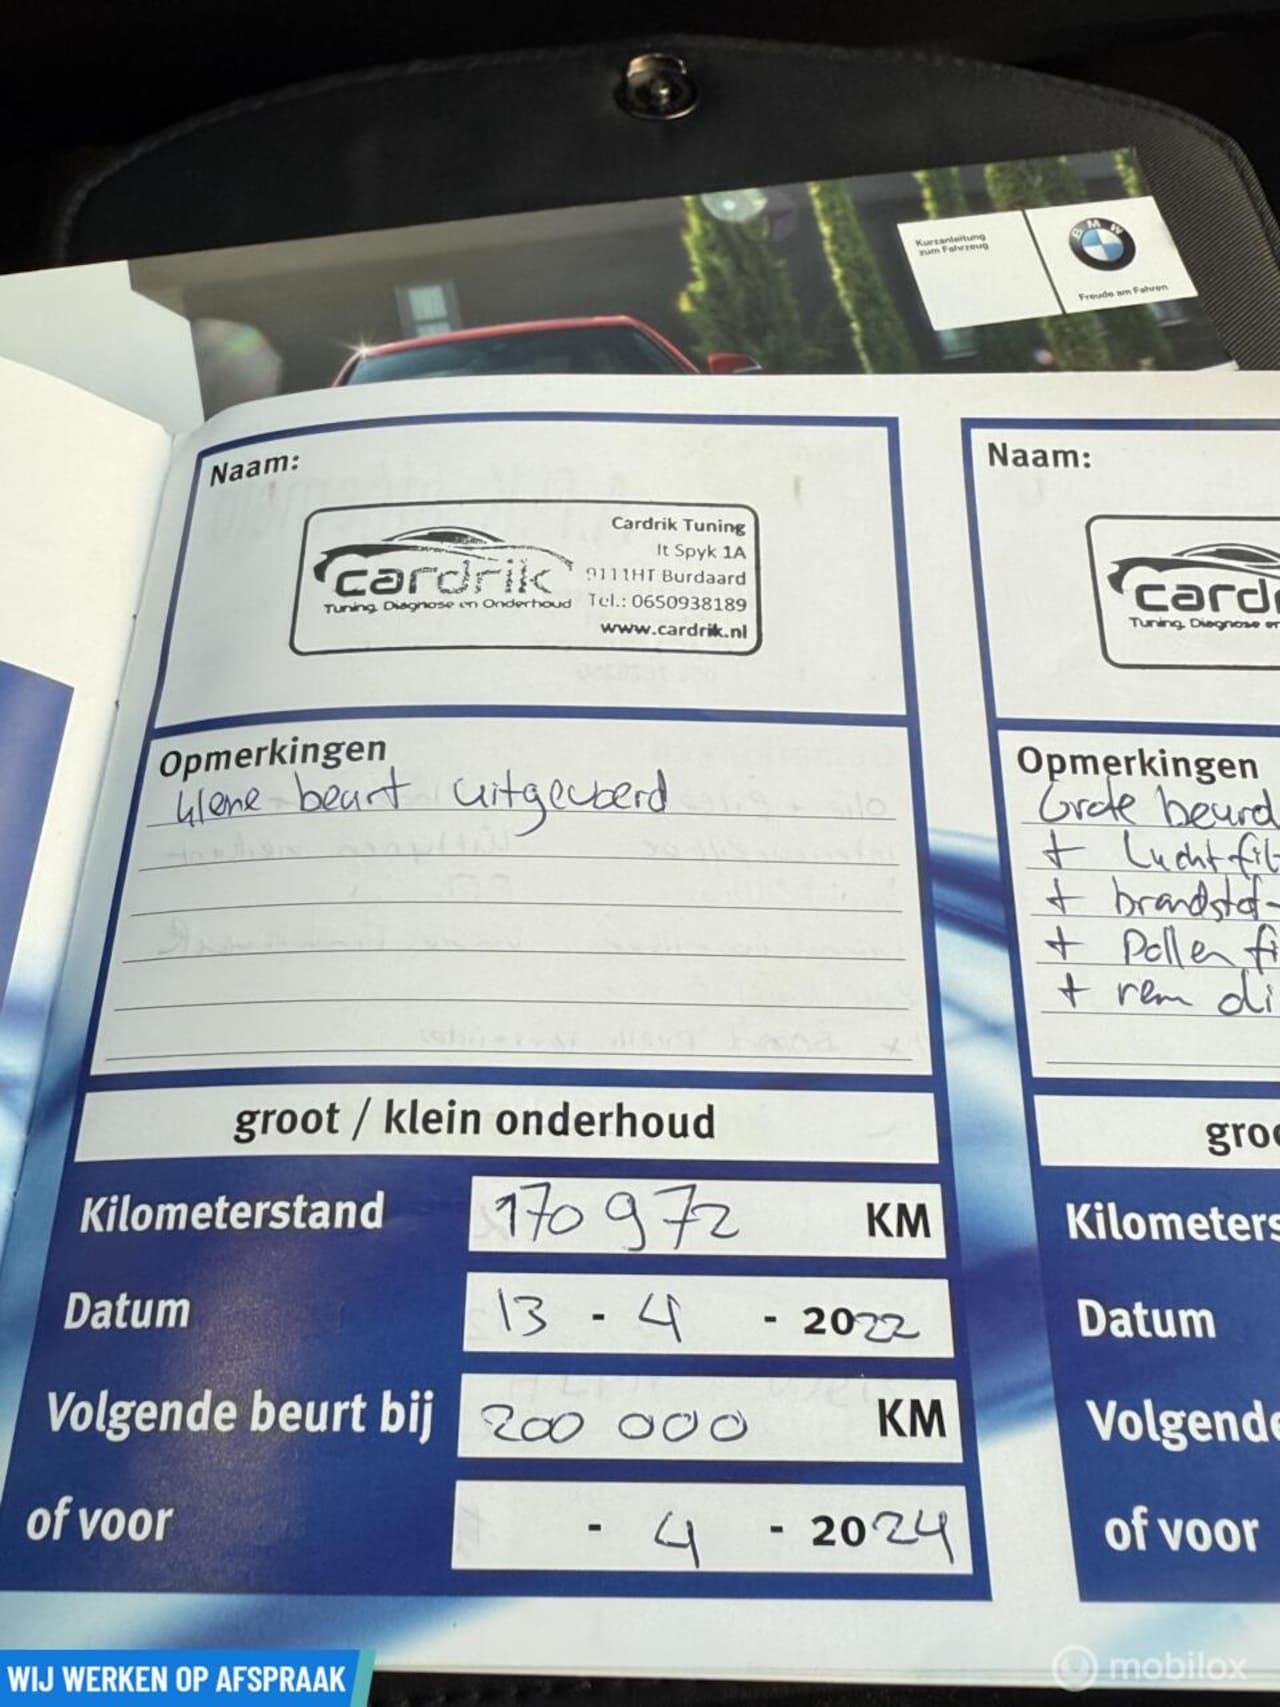 Kurzanleitung
zum Fahrzeug
BMW
Freude am Fahren
Naam:
Cardrik Tuning
It Spyk 1A
9111HT Burdaard
Tel.: 0650938189
www.cardrik.nl
cardrik
Tuning, Diagnose en Onderhoud
Opmerkingen
klene beurt uitgevoerd
groot / klein onderhoud
Kilometerstand 170 972 KM
Datum 13 - 4 - 2022
Volgende beurt bij 200 000 KM
of voor - 4 - 2024
Naam:
cardr
Tuning, Diagnose en
Opmerkingen
Grote beurd
+ Luchtfilt
+ brandstof-
+ Pollen fi
+ rem di
groo
Kilometers
Datum
Volgende
of voor
WIJ WERKEN OP AFSPRAAK
mobilox